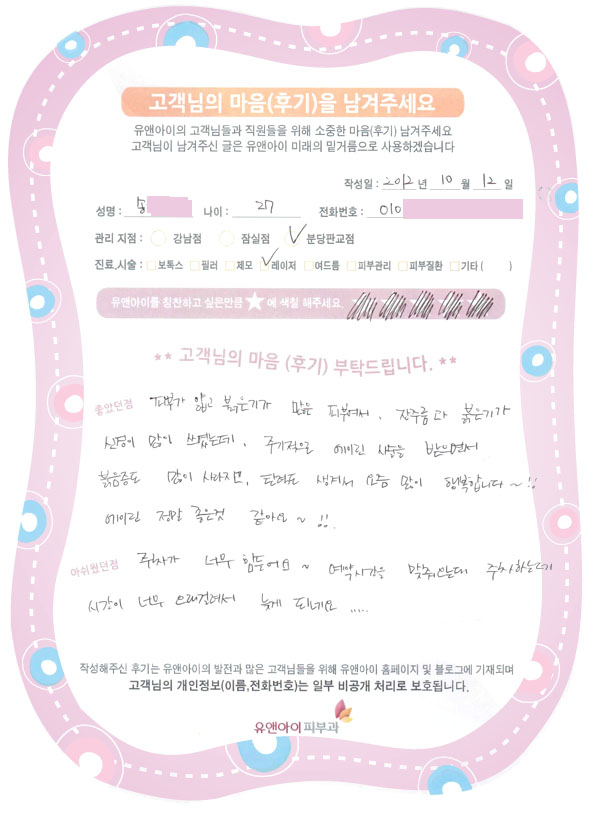 고객님의 마음(후기)을 남겨주세요
유앤아이의 고객님들과 직원들을 위해 소중한 마음(후기) 남겨주세요
고객님이 남겨주신 글은 유앤아이 미래의 밑거름으로 사용하겠습니다
작성일 : 2012 년 10 월 12 일
성명 : 송 나이 : 27 전화번호 : 010
관리 지점 : 강남점 잠실점 분당판교점
진료,시술 : 보톡스 필러 제모 레이저 여드름 피부관리 피부질환 기타 ( )
유앤아이를 칭찬하고 싶은만큼 ★ 에 색칠 해주세요.
** 고객님의 마음 (후기) 부탁드립니다. **
좋았던점 피부가 얇고 붉은기가 많은 피부여서, 잔주름과 붉은기가
신경이 많이 쓰였는데, 주기적으로 에이린 시술을 받으면서
붉음증도 많이 사라지고, 탄력도 생겨서 요즘 많이 행복합니다~!!
에이린 정말 좋은것 같아요~!!
아쉬웠던점 주차가 너무 힘들어요~ 예약시간을 맞춰왔는데 주차하는데
시간이 너무 오래걸려서 늦게 되네요.....
작성해주신 후기는 유앤아이의 발전과 많은 고객님들을 위해 유앤아이 홈페이지 및 블로그에 기재되며
고객님의 개인정보(이름,전화번호)는 일부 비공개 처리로 보호됩니다.
유앤아이피부과